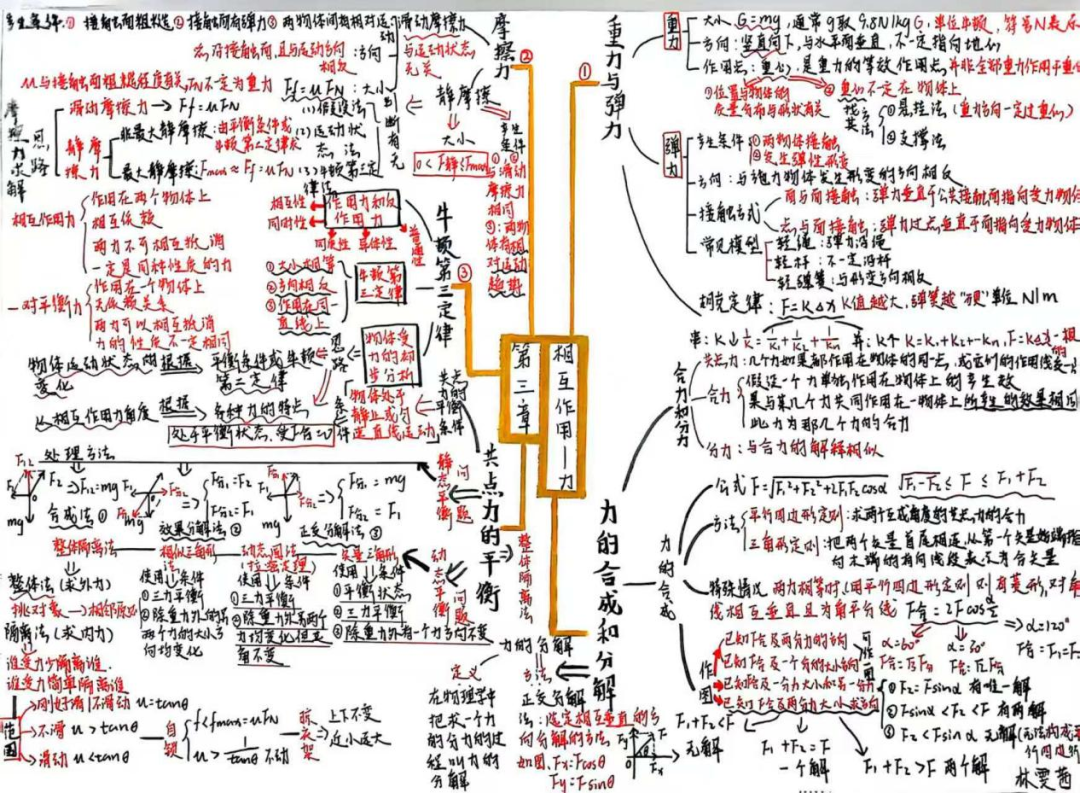 第三章
相互作用—力
①
重力与弹力
重力
大小 G=mg,通常g取9.8N/kg G,单位牛顿,符号N表示
方向:竖直向下,与水平面垂直,不一定指向地心
作用点:重心,是重力的等效作用点,并非全部重力作用于重心
①位置与物体的
质量分布与形状有关
②重心不一定在物体上
找其方法
①悬挂法(重力方向一定过重心)
②支撑法
弹力
产生条件:①两物体接触
②发生弹性形变
方向:与施力物体发生形变的方向相反
接触方式
面与面接触:弹力垂直于公共接触面指向受力物体
点与面接触:弹力过点垂直于面指向受力物体
常见模型
轻绳:弹力沿绳
轻杆:不一定沿杆
轻弹簧:与形变方向相反
胡克定律:F=KΔx K值越大,弹簧越"硬"单位N/m
②
摩擦力
产生条件:① 接触面粗糙 ② 接触面有弹力 ③ 两物体间有相对运动
滑动摩擦力
与运动状态
无关
μ与接触面粗糙程度有关,FN不一定为重力
Ff=μFN:大小
摩擦力求解
思路
滑动摩擦力→Ff=μFN
静摩擦力
非最大静摩擦:由平衡条件或
牛顿第二定律求
最大静摩擦:Fmax≈Ff=μFN
判断有无
(1)假设法
(2)运动状
态法
(3)牛顿第三定
律法
静摩擦
大小
0<F静≤Fmax
产生条件
①、②
与滑动
摩擦力
相同
③:两物
体有相
对运动
趋势
③
牛顿第三定律
作用力和反
作用力
相互性
同时性
同性性
异体性
普遍性
牛顿第
三定律
①大小相等
②方向相反
③作用在同
直线上
相互作用力
作用在两个物体上
相互依赖
两力不可相互抵消
一定是同种性质的力
一对平衡力
作用在一个物体上
无依赖关系
两力可以相互抵消
力的性质不一定相同
物体受
力的初
步分析
思路
物体运动状态的根据→平衡条件或牛顿
变化
第二定律
从相互作用力角度 根据→各种力的特点
共点力的平衡
共点力的平衡条件
物体处于
静止或匀
速直线运动
条件
处于平衡状态,受F合=0
静态平衡问题
处理方法
F12
F
F1
mg
⇒F12=mg
合成法①
F合1=F2
F合2=F1
效果分解法②
F合1=mg
F合2=F1
正交分解法③
动态平衡问题
整体隔离法
相似三角形
法
动态圆法
(拉密定理)
矢量三角形
使用条件
①三力平衡
②除重力外的另
两个力的大小方
向均变化
使用条件
①三力平衡
②除重力外另两个
力均变化但夹
角不变
使用条件
①平衡状态
②三力平衡
③除重力外有一个力方向不变
整体隔离法
整体法(求外力)
隔离法(求内力)
谁受力少隔离谁
谁受力简单隔离谁
范围
刚好滑/不滑动 μ=tanθ
不滑 μ>tanθ
滑动 μ<tanθ
自锁
f<fmax=μFN
μ>1/tanθ 不动
晾衣架
上下不变
近小远大
力的合成和分解
合力和分力
共点力:几个力如果都作用在物体的同一点,或它们的作用线交一点
合力
假设一个力单独作用在物体上的产生效
果与某几个力共同作用在一物体上所产生的效果相同
此力为那几个力的合力
分力:与合力的解释相似
力的合成
公式 F=√F1²+F2²+2F1F2cosα
|F1-F2|≤F≤F1+F2
方法
平行四边形定则:求两个互成角度的共点力的合力
三角形定则:把两个矢量首尾相连,从第一个矢量始端指
向末端的有向线段表示为合矢量
特殊情况
两力相等时(用平行四边形定则则有菱形,对角
线相互垂直且为角平分线
F合=2Fcosα/2
α=120°
F合=F1=F2
α=60°
作图
已知F合及两分力的方向
已知F合及一个分力的大小方向
可作唯一
已知F合及一分力大小和另一分力
已知F合及两分力大小求方向
①F2=Fsinα 有唯一解
②Fsinα<F2<F 有两解
③F2<Fsinα 无解
F1+F2<F
无解
F1+F2=F
一个解
F1+F2>F 两个解
力的分解
定义
在物理学中
把求一个力
的分力的过
程叫力的
分解
方法
正交分解
法:选定相互垂直的方
向分解的方法
如图,Fx=Fcosθ
Fy=Fsinθ
Fy
F
Fx
林雯茜